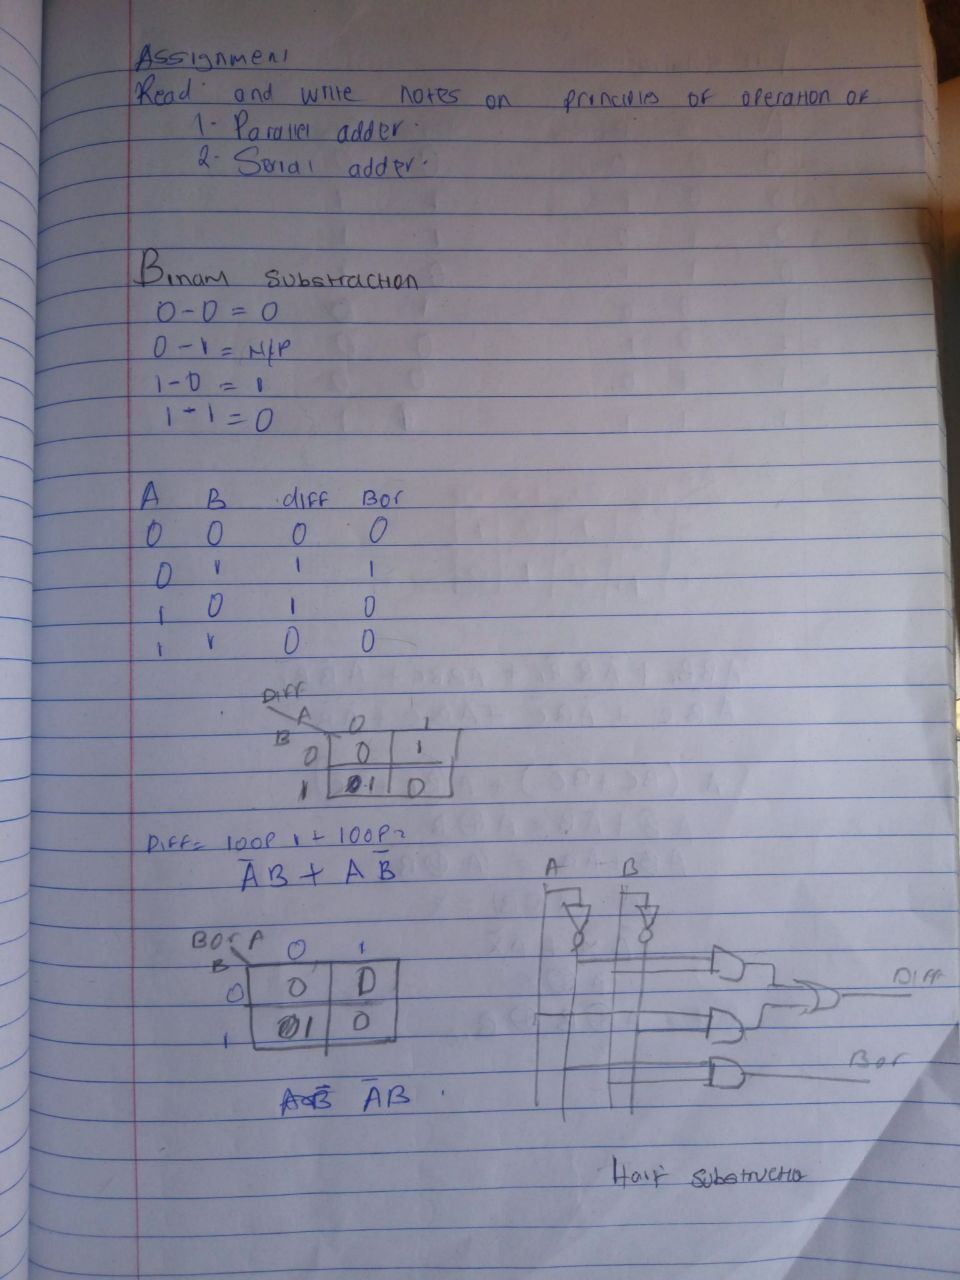 Assignment
Read and write notes on principles of operation of
1- Parallel adder.
2- Serial adder.
Binary substraction
0 - 0 = 0
0 - 1 = N/P
1 - 0 = 1
1 - 1 = 0
A B diff Bor
0 0 0 0
0 1 1 1
1 0 1 0
1 1 0 0
Diff
A 0 1
B
0 0 1
1 1 0
Diff = loop 1 + loop 2
A̅B + AB̅
A B
Bor A 0 1
B
0 0 0
1 1 0
Diff
Bor
A̅B
Half substructor